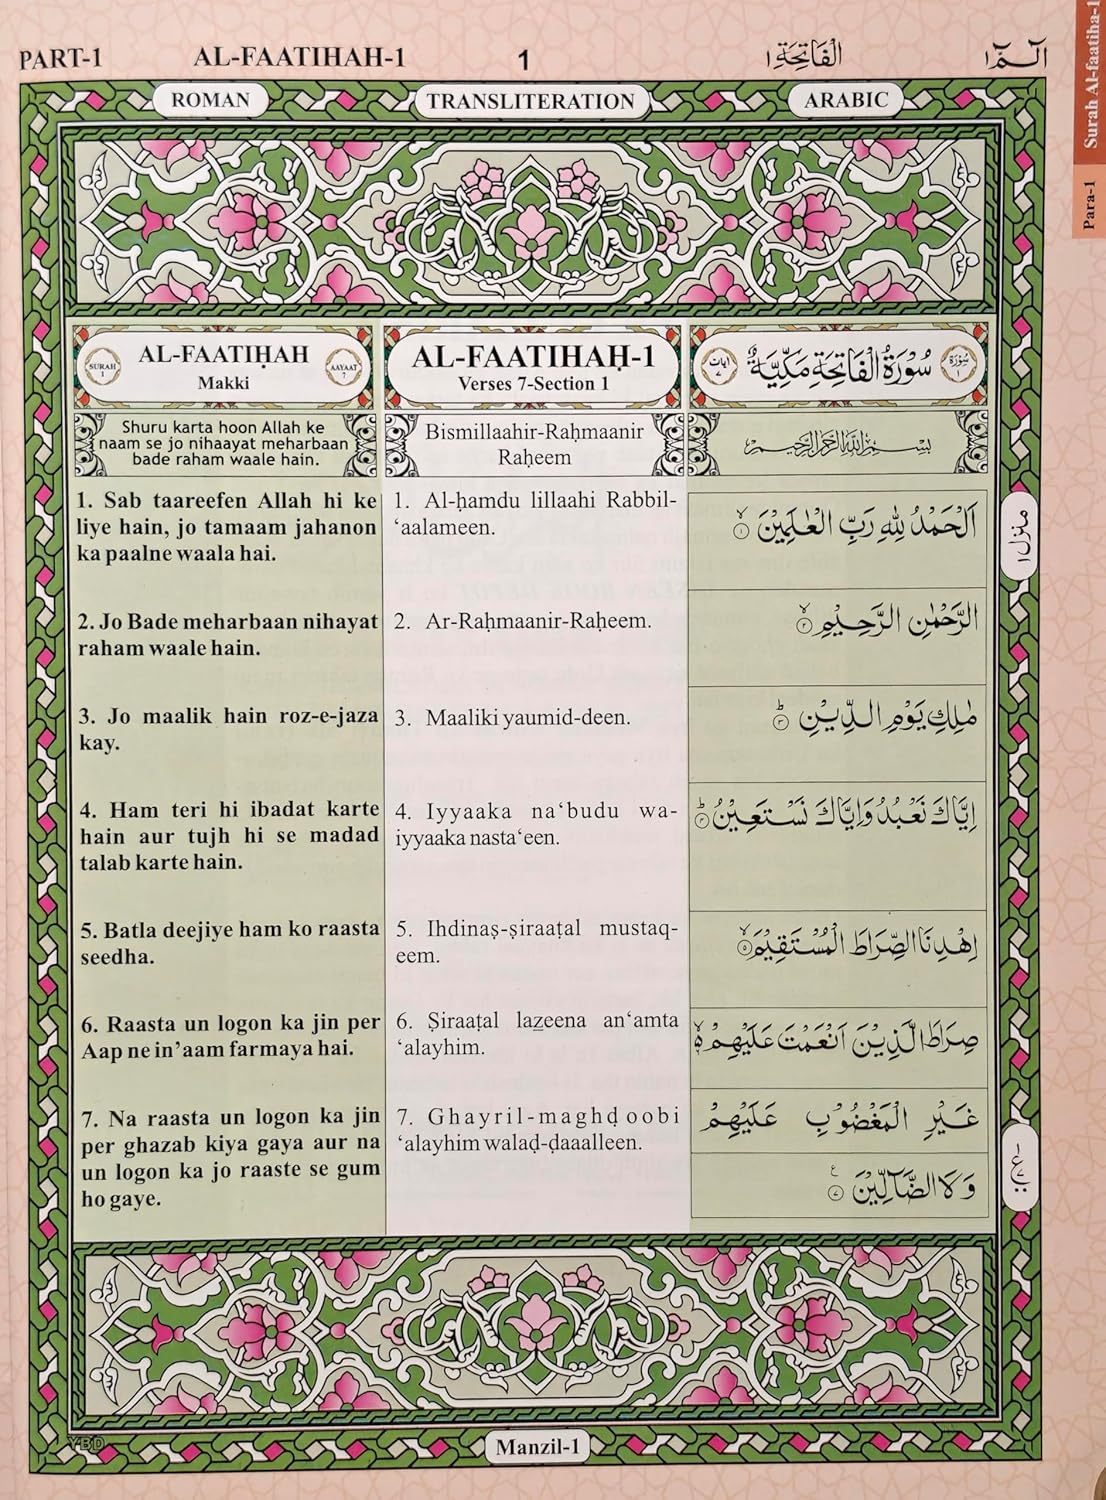 PART-1 AL-FAATIHAH-1 1 الْفَاتِحَة ١ الٓـمّٓ ١
Surah Al-faatiha-1
Para-1
ROMAN TRANSLITERATION ARABIC
SURAH 1
AL-FAATIḤAH
Makki
AAYAAT 7
Shuru karta hoon Allah ke
naam se jo nihaayat meharbaan
bade raham waale hain.
1. Sab taareefen Allah hi ke
liye hain, jo tamaam jahanon
ka paalne waala hai.
2. Jo Bade meharbaan nihayat
raham waale hain.
3. Jo maalik hain roz-e-jaza
kay.
4. Ham teri hi ibadat karte
hain aur tujh hi se madad
talab karte hain.
5. Batla deejiye ham ko raasta
seedha.
6. Raasta un logon ka jin per
Aap ne in’aam farmaya hai.
7. Na raasta un logon ka jin
per ghazab kiya gaya aur na
un logon ka jo raaste se gum
ho gaye.
AL-FAATIHAḤ-1
Verses 7-Section 1
Bismillaahir-Raḥmaanir
Raḥeem
1. Al-ḥamdu lillaahi Rabbil-
‘aalameen.
2. Ar-Raḥmaanir-Raḥeem.
3. Maaliki yaumid-deen.
4. Iyyaaka na‘budu wa-
iyyaaka nasta‘een.
5. Ihdinaṣ-ṣiraaṭal mustaq-
eem.
6. Ṣiraaṭal lazeena an‘amta
‘alayhim.
7. Ghayril-maghḍoobi
‘alayhim walaḍ-ḍaaalleen.
سُوْرَةُ الْفَاتِحَةِ مَكِّيَّةٌ
سُوْرَة ١
اٰيات ٧
بِسْمِ اللهِ الرَّحْمٰنِ الرَّحِيْمِ
اَلْحَمْدُ لِلّٰهِ رَبِّ الْعٰلَمِيْنَ ۙ ١
الرَّحْمٰنِ الرَّحِيْمِ ۙ ٢
مٰلِكِ يَوْمِ الدِّيْنِ ؕ ٣
اِيَّاكَ نَعْبُدُ وَاِيَّاكَ نَسْتَعِيْنُ ؕ ٤
اِهْدِنَا الصِّرَاطَ الْمُسْتَقِيْمَ ۙ ٥
صِرَاطَ الَّذِيْنَ اَنْعَمْتَ عَلَيْهِمْ ۙ ٦
غَيْرِ الْمَغْضُوْبِ عَلَيْهِمْ
وَلَا الضَّآلِّيْنَ ع ٧
منزل ١
Manzil-1
YBD